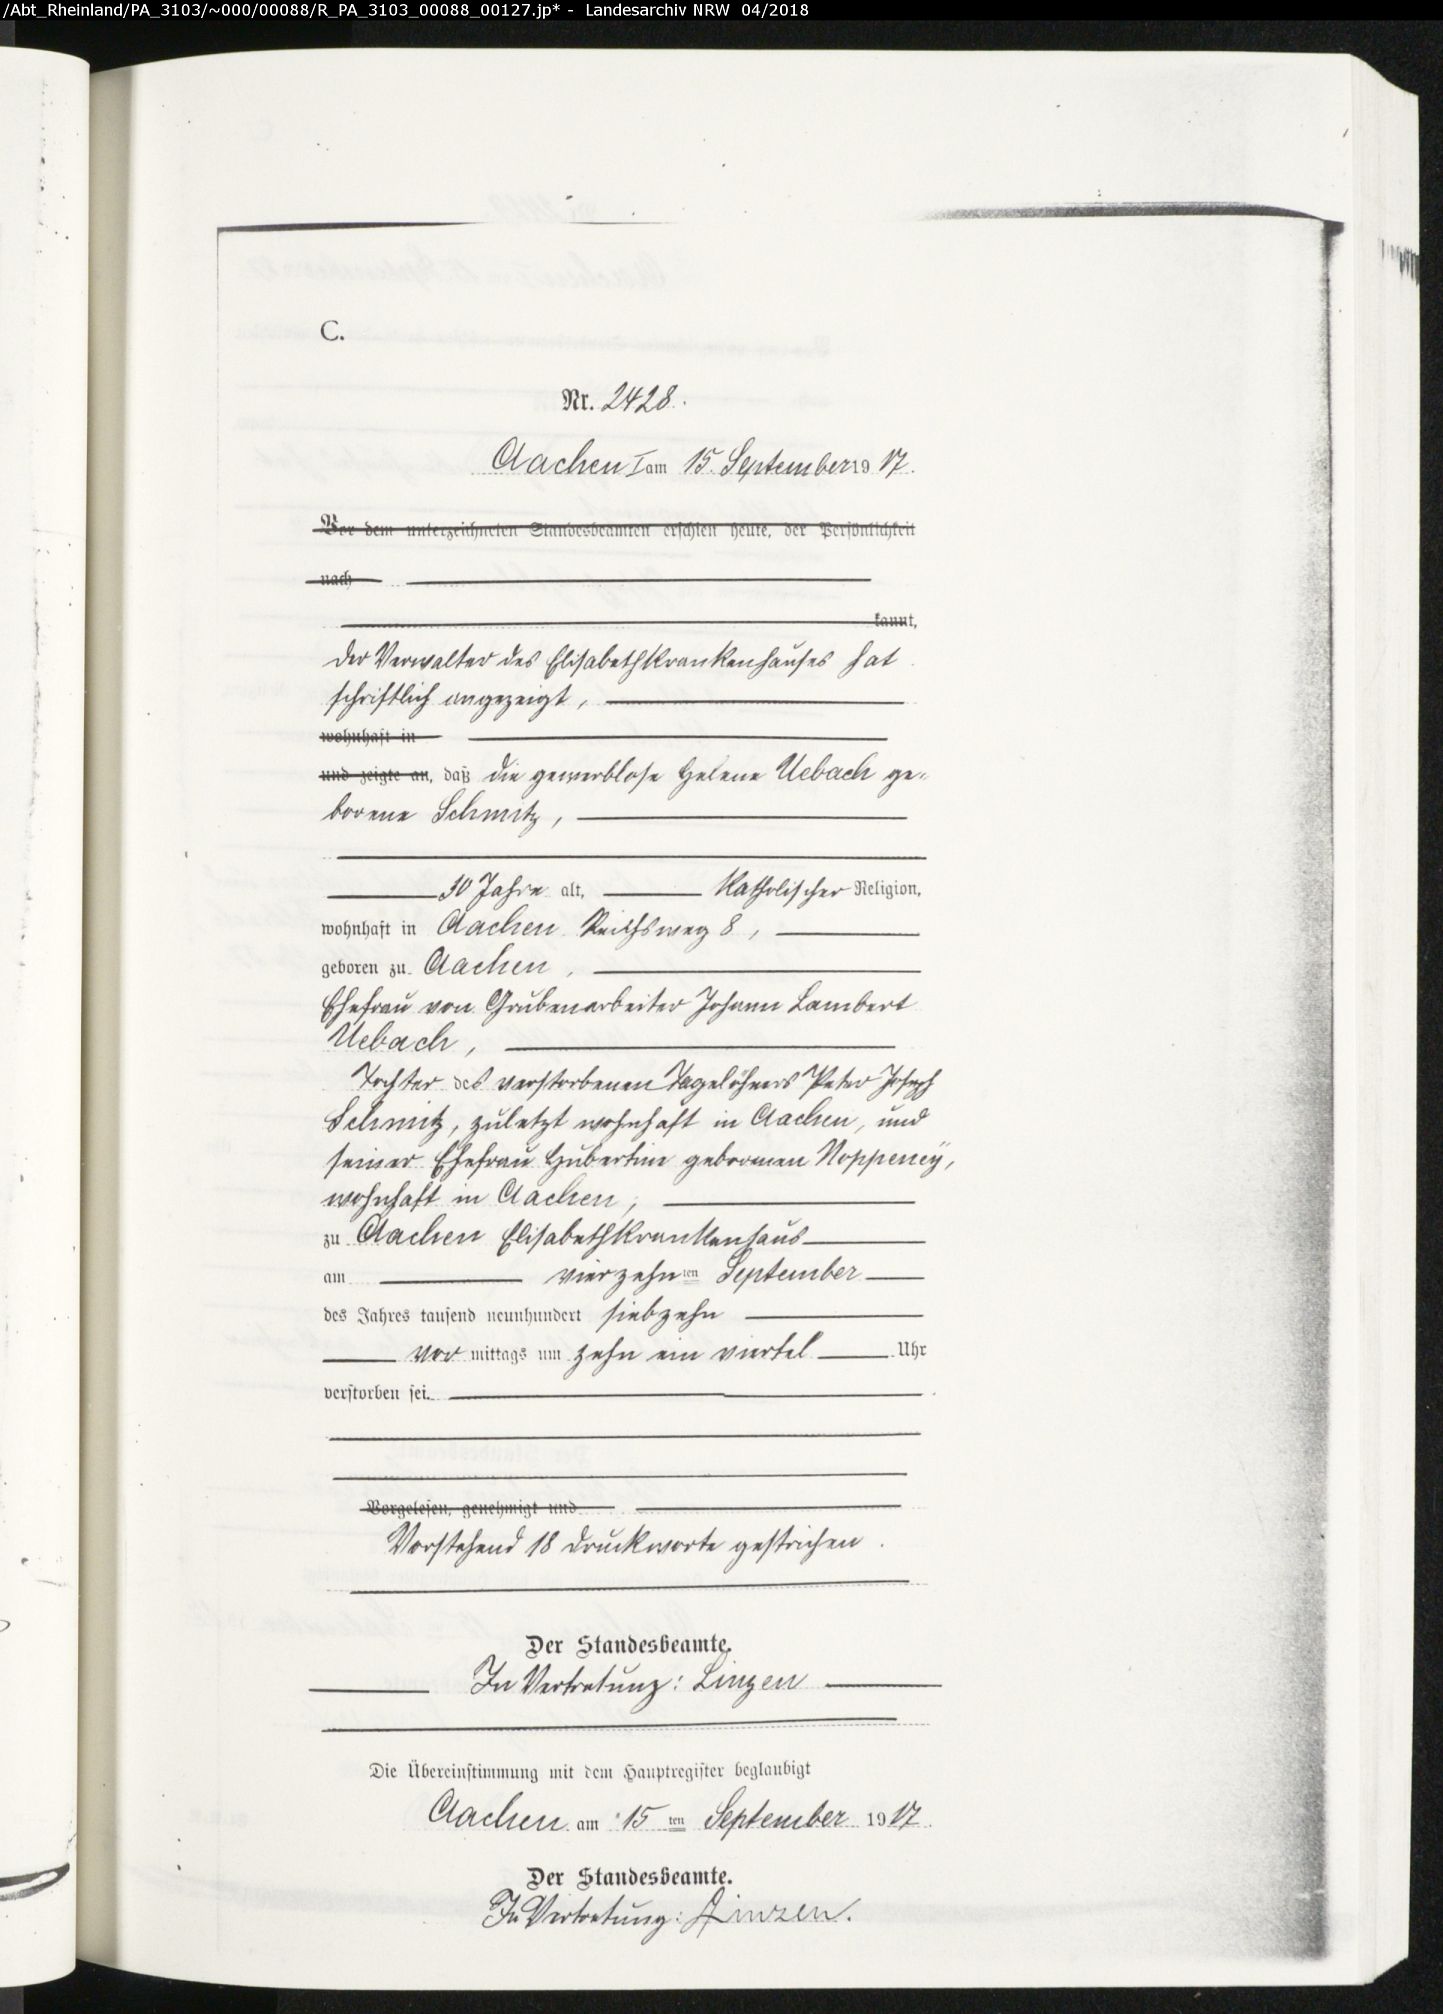 /Abt_Rheinland/PA_3103/~000/00088/R_PA_3103_00088_00127.jp* - Landesarchiv NRW 04/2018
C.
Nr. 2428.
Aachen I am 15. September 1917.
Vor dem unterzeichneten Standesbeamten erschien heute, der Persönlichkeit
nach
kannt,
der Verwalter des Elisabethkrankenhauses hat
schriftlich angezeigt,
wohnhaft in
und zeigte an, daß die gewerblose Helene Uebach ge-
borene Schmitz,
30 Jahre alt, katholischer Religion,
wohnhaft in Aachen Reichsweg 8,
geboren zu Aachen,
Ehefrau von Grubenarbeiter Johann Lambert
Uebach,
Tochter des verstorbenen Tagelöhners Peter Joseph
Schmitz, zuletzt wohnhaft in Aachen, und
seiner Ehefrau Hubertine geborenen Noppeney,
wohnhaft in Aachen,
zu Aachen Elisabethkrankenhaus
am vierzehnten September
des Jahres tausend neunhundert siebzehn
vor mittags um zehn ein viertel Uhr
verstorben sei.
Vorgelesen, genehmigt und
Vorstehend 18 Druckworte gestrichen.
Der Standesbeamte.
In Vertretung: Linzen
Die Übereinstimmung mit dem Hauptregister beglaubigt
Aachen am 15 ten September 1917.
Der Standesbeamte.
In Vertretung: Linzen.